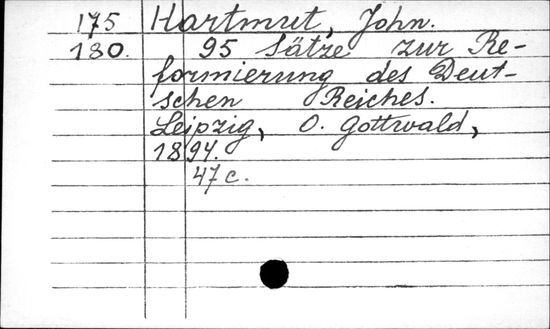 175 Hartmut, John.
180. 95 Sätze zur Re-
formierung des Deut-
schen Reiches.
Leipzig, O. Gottwald,
1894.
47 c.